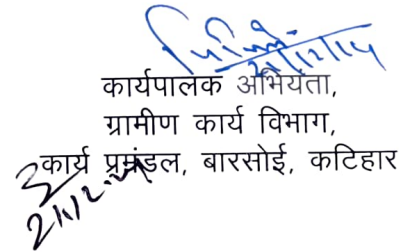 21/12/24
कार्यपालक अभियंता,
ग्रामीण कार्य विभाग,
कार्य प्रमंडल, बारसोई, कटिहार
21/12/24